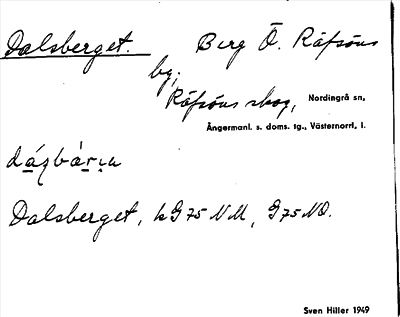 Dalsberget. Berg Ö. Räfsöns
by;
Räfsöns skog, Nordingrå sn,
Ångermanl. s. doms. tg., Västernorrl, l.
Dalsberget, k G 75 NM, G 75 NO.
Sven Hiller 1949